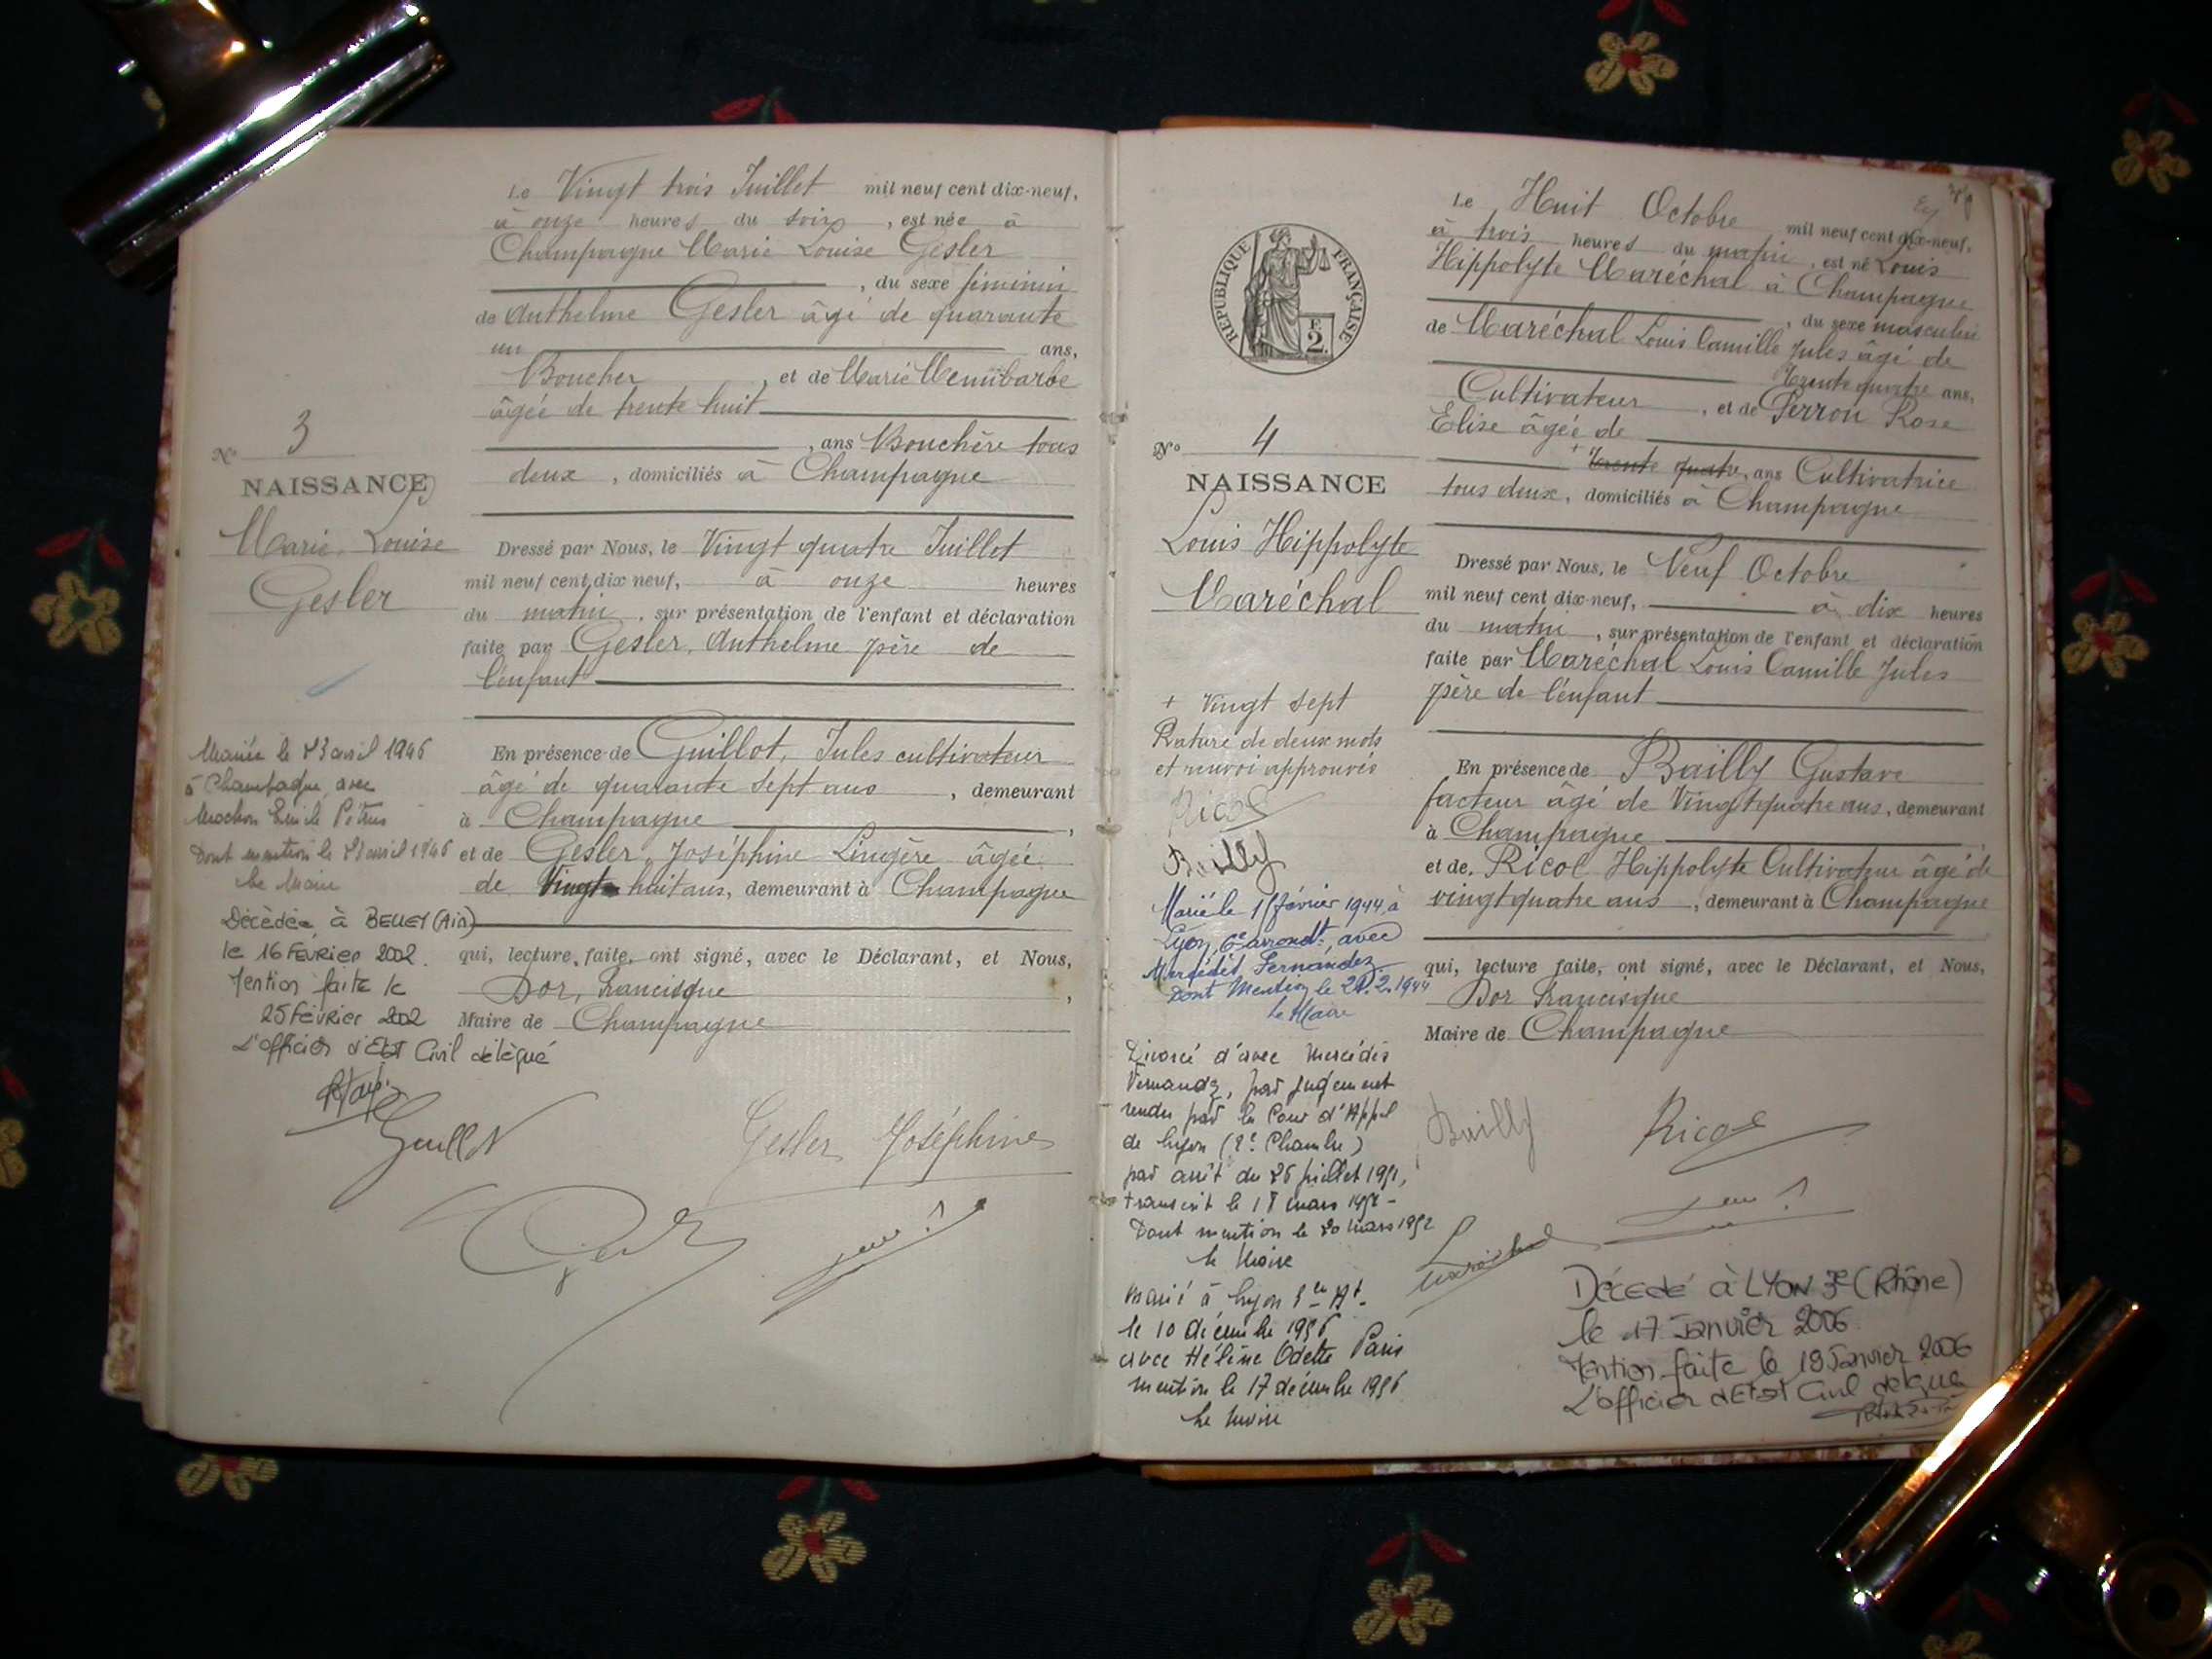 Le Vingt trois Juillet mil neuf cent dix-neuf,
à onze heures du soir, est née à
Champagne Marie Louise Gesler
, du sexe féminin
de Anthelme Gesler âgé de quarante
un ans,
Boucher, et de Marie
âgée de trente huit
, ans Bouchère tous
deux, domiciliés à Champagne
N° 3
NAISSANCE
Marie Louise
Gesler
Dressé par Nous, le Vingt quatre Juillet
mil neuf cent dix neuf, à onze heures
du matin, sur présentation de l'enfant et déclaration
faite par Gesler, Anthelme père de
l'enfant
En présence de Guillot, Jules cultivateur
âgé de quarante sept ans, demeurant
à Champagne,
et de Gesler, Joséphine Lingère âgée
de Vingt huit ans, demeurant à Champagne
qui, lecture faite, ont signé, avec le Déclarant, et Nous,
Dor, Francisque,
Maire de Champagne
Mariée le avril 1946
à Champagne avec
Emile
Dont mention le avril 1946
Le Maire
Décédée à BELLEY (Ain)
le 16 FÉVRIER 2002.
Mention faite le
25 Février 2002
L'officier d'Etat Civil délégué
Guillot
Gesler Joséphine
RÉPUBLIQUE FRANÇAISE
F.
2.
Le Huit Octobre mil neuf cent dix-neuf,
à trois heures du matin, est né Louis
Hippolyte Maréchal à Champagne
, du sexe masculin
de Maréchal Louis Camille Jules âgé de
Trente quatre ans,
Cultivateur, et de Perron Rose
Elise âgée de
+ Trente quatre, ans Cultivatrice
tous deux, domiciliés à Champagne
N° 4
NAISSANCE
Louis Hippolyte
Maréchal
Dressé par Nous, le Neuf Octobre
mil neuf cent dix-neuf, à dix heures
du matin, sur présentation de l'enfant et déclaration
faite par Maréchal Louis Camille Jules
père de l'enfant
En présence de Bailly Gustave
facteur âgé de Vingt quatre ans, demeurant
à Champagne,
et de, Ricol Hippolyte Cultivateur âgé de
vingt quatre ans, demeurant à Champagne
qui, lecture faite, ont signé, avec le Déclarant, et Nous,
Dor Francisque
Maire de Champagne
+ Vingt sept
Rature de deux mots
et renvoi approuvés
Ricol
Bailly
Marié le février 1944, à
Lyon, 6e arrondt, avec
Mercédès Fernandez.
Dont Mention le 2.1944
Le Maire
Divorcé d'avec Mercédès
Fernandez, par jugement
rendu par la Cour d'Appel
de Lyon (2e Chambre)
par arrêt du juillet 1951,
transcrit le 18 mars 1952 -
Dont mention le 20 mars 1952
le Maire
Marié à Lyon
le 10 décembre 1956
avec Hélène Odette Paris
mention le 17 décembre 1956
Le Maire
Bailly
Ricol
Maréchal
Décédé à LYON 3e (Rhône)
le 17 Janvier 2006
Mention faite le 19 Janvier 2006
L'officier d'Etat Civil délégué